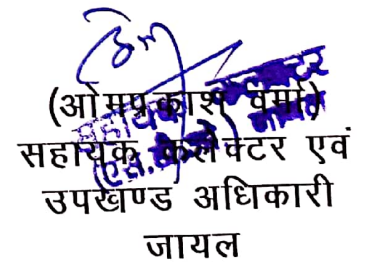 (ओमप्रकाश वर्मा)
सहायक कलेक्टर एवं
उपखण्ड अधिकारी
जायल